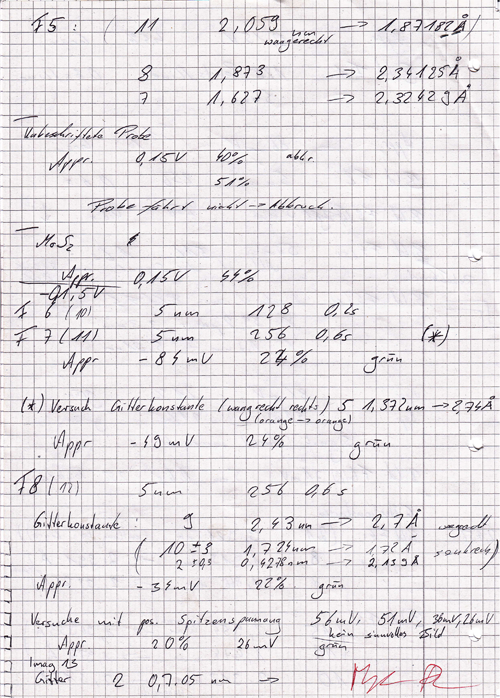 F5 : ( 11 2,059 nm → 1,87182 Å )
waagerecht
8 1,873 → 2,34125 Å
7 1,627 → 2,32429 Å
Unbeschriftete Probe
Appr. 0,15V 40% abbr.
51%
Probe fährt nicht → Abbruch.
MoS2
Appr. 0,15V 44%
F 6 (10) 5nm 128 0,2s
F 7 (11) 5nm 256 0,6s (*)
Appr - 84 mV % grün
(*) Versuch Gitterkonstante (waagrecht rechts) 5 1,372nm → 2,74Å
(orange → orange)
Appr - 49 mV 24% grün
F8 (12) 5nm 256 0,6s
Gitterkonstante : 9 2,43 nm → 2,7 Å waagrecht
( 10 ± 3 1,724nm → 1,72 Å senkrecht )
2 ±0,5 0,4278nm → 2,139 Å
Appr - 34 mV 22% grün
Versuche mit pos. Spitzenspannung 56 mV, 51 mV, 36mV, 26mV
kein sinnvolles Bild
Appr 20% 26mV grün
Imag 13
Gitter 2 0,7.05 nm →